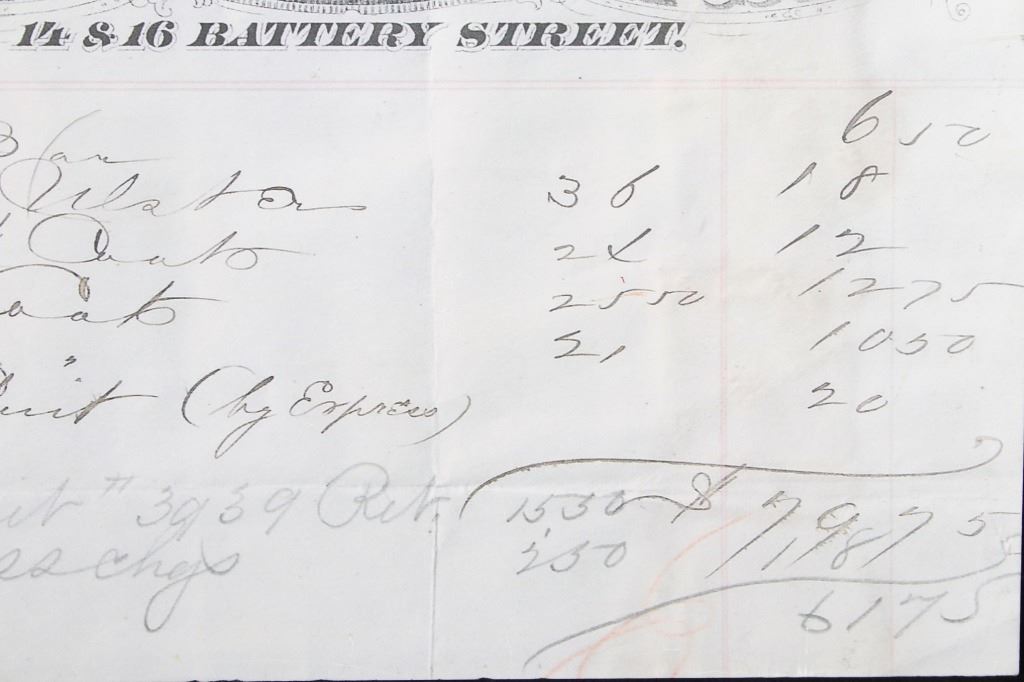 14 & 16 BATTERY STREET.
6 50
Ulster 36 18
Coat 24 12
Coat 25 50 12 75
" 21 10 50
Suit (by Express) 20
# 3939 Ret. 15 50 $ 79 75
chgs 2 50 18
61 75